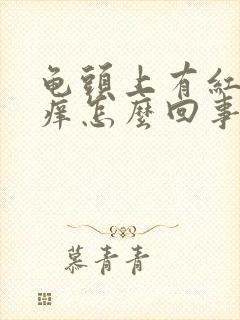 龟頭上有紅
痒怎麼回事
慕青青